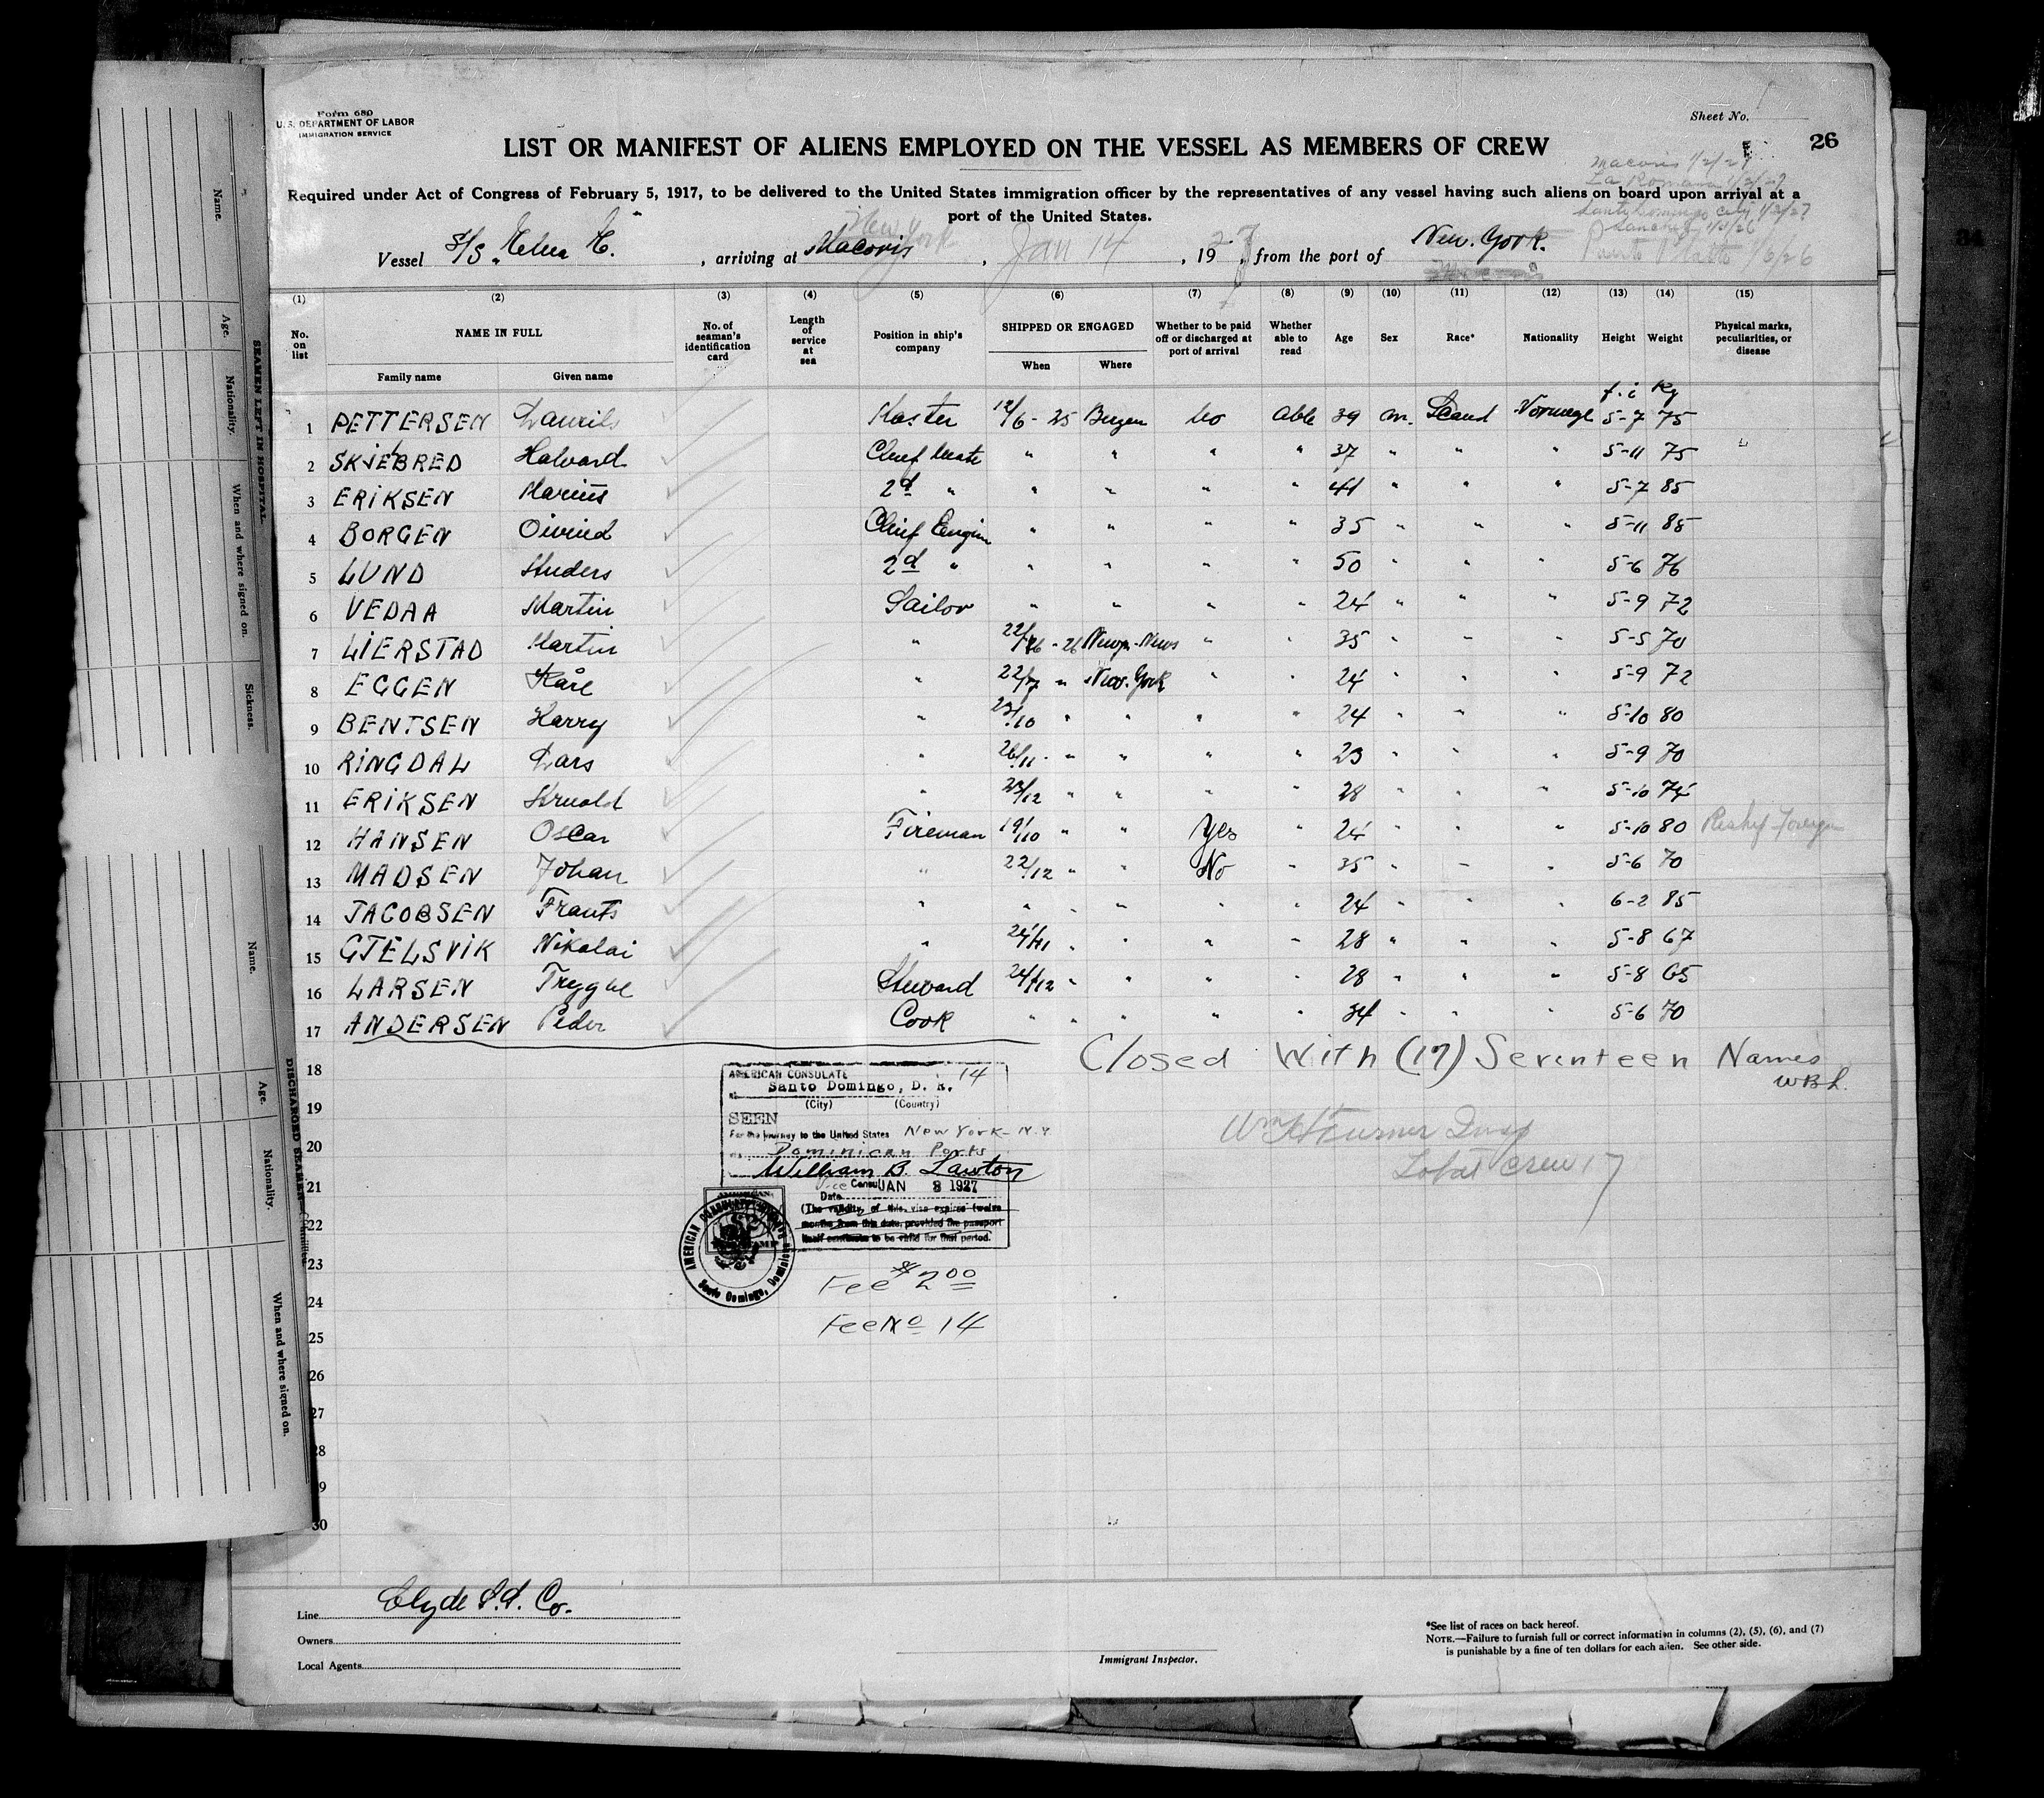 Form 680
U. S. DEPARTMENT OF LABOR
IMMIGRATION SERVICE
Sheet No.
26
LIST OR MANIFEST OF ALIENS EMPLOYED ON THE VESSEL AS MEMBERS OF CREW
Macoris 1/2/27
La Romana 1/2/27
Required under Act of Congress of February 5, 1917, to be delivered to the United States immigration officer by the representatives of any vessel having such aliens on board upon arrival at a
port of the United States.
Santo Domingo City 1/2/27
Sanchez 1/5/26
Puerto Platto 1/6/26
New York
Vessel S/S "Elna E." , arriving at Macoris , Jan 14 , 1927, from the port of New. York.
(1) (2) (3) (4) (5) (6) (7) (8) (9) (10) (11) (12) (13) (14) (15)
No. on list NAME IN FULL No. of seaman's identification card Length of service at sea Position in ship's company SHIPPED OR ENGAGED Whether to be paid off or discharged at port of arrival Whether able to read Age Sex Race* Nationality Height Weight Physical marks, peculiarities, or disease
Family name Given name When Where
f. i Kg
1 PETTERSEN Laurits Master 12/6 - 25 Bergen No able 39 m. Scand Norwege 5-7 75
2 SKJEBRED Halvard Chief Mate " " " " 37 " " " 5-11 75
3 ERIKSEN Marius 2d " " " " " 41 " " " 5-7 85
4 BORGEN Oivind Chief Engin " " " " 35 " " " 5-11 85
5 LUND Anders 2d " " " " " 50 " " " 5-6 76
6 VEDAA Martin Sailor " " " " 24 " " " 5-9 72
7 LIERSTAD Martin " - 26 Newp.-News " " 35 " " " 5-5 70
8 EGGEN Kåre " 22/7 " New.York " " 24 " " " 5-9 72
9 BENTSEN Harry " 23/10 " " " " 24 " " " 5-10 80
10 RINGDAL Lars " 26/11 " " " " 23 " " " 5-9 70
11 ERIKSEN Arnold " 23/12 " " " " 28 " " " 5-10 74
12 HANSEN Oscar Fireman 19/10 " " Yes " 24 " " " 5-10 80 Reship Foreign
13 MADSEN Johan " 22/12 " " No " 35 " " " 5-6 70
14 JACOBSEN Frants " " " " " " 24 " " " 6-2 85
15 GJELSVIK Nikolai " 24/11 " " " " 28 " " " 5-8 67
16 LARSEN Trygve Steward 24/12 " " " " 28 " " " 5-8 65
17 ANDERSEN Peder Cook " " " " " 34 " " " 5-6 70
Closed With (17) Seventeen Names
WBL.
18
19
20
21
22
23
24
25
26
27
28
29
30
AMERICAN CONSULATE 14
Santo Domingo, D. R.
(City) (Country)
SEEN
For the journey to the United States New York - N.Y
Dominican Ports
William B. Lawton
Vice Consul
Date JAN 8 1927
(The validity of this visa expires twelve
months from this date, provided the passport
itself continues to be valid for that period.
AMERICAN CONSULATE
Santo Domingo, Dominican
Fee $2 00
Fee No 14
Wm H Turner Insp
Total crew 17
Line Clyde S.S. Co.
Owners
Local Agents
Immigrant Inspector.
*See list of races on back hereof.
NOTE.—Failure to furnish full or correct information in columns (2), (5), (6), and (7)
is punishable by a fine of ten dollars for each alien. See other side.
SEAMEN LEFT IN HOSPITAL
Name. Age. Nationality. When and where signed on. Sickness.
DISCHARGED SEAMEN
Name. Age. Nationality. When and where signed on.